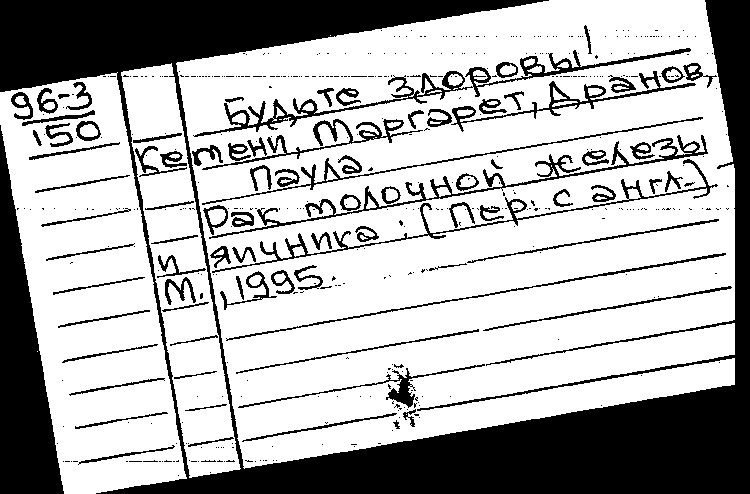 96-3
150
Будьте здоровы!
Кемени, Маргарет, Дранов,
Паула.
Рак молочной железы
и яичника : [Пер. с англ.]
М., 1995.